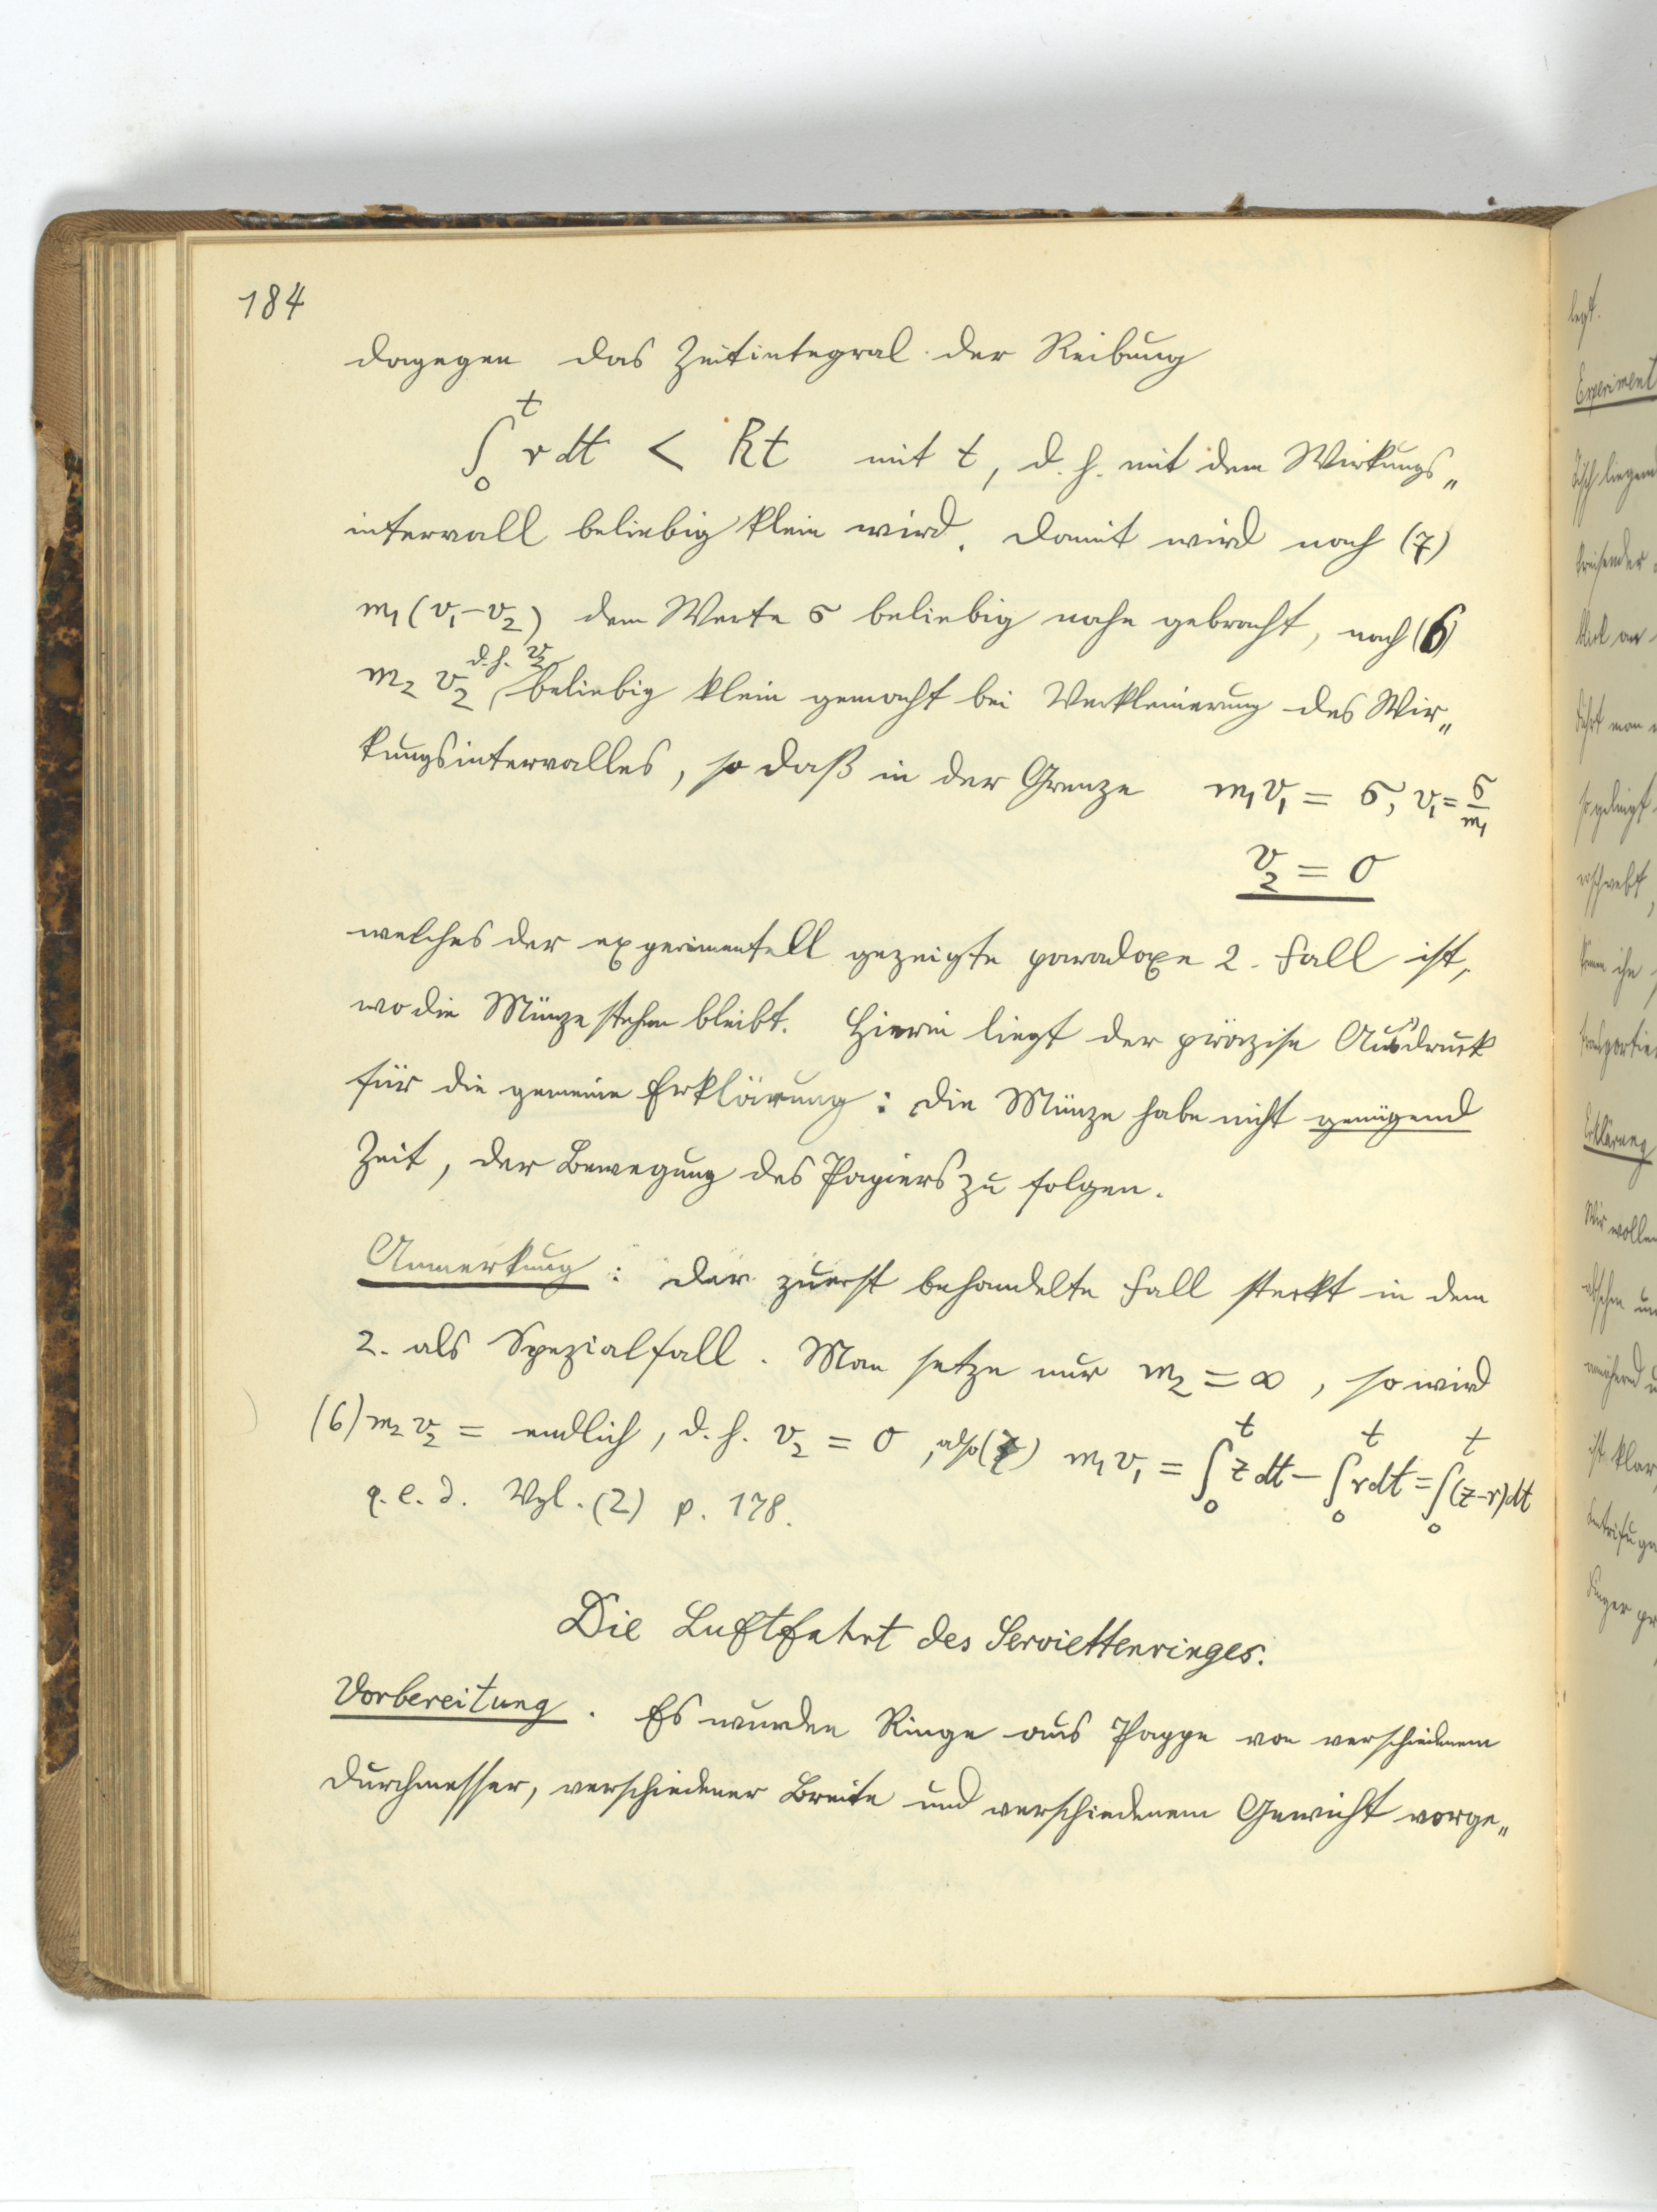 184
dagegen das Zeitintegral der Reibung
∫₀ᵗ r dt < Rt mit t, d. h. mit dem Wirkungs„
intervall beliebig klein wird. Damit wird nach (7)
m₁(v₁–v₂) dem Werte σ beliebig nahe gebracht, nach (6)
m₂ v₂ d. h. v₂ beliebig klein gemacht bei Verkleinerung des Wir„
kungsintervalles, so daß in der Grenze m₁v₁ = σ, v₁ = σ/m₁
v₂ = 0
welches der experimentell gezeigte paradoxe 2. Fall ist,
wo die Münze stehen bleibt. Hierin liegt der präzise Ausdruck
für die gemeine Erklärung: die Münze habe nicht genügend
Zeit, der Bewegung des Papiers zu folgen.
Anmerkung: der zuerst behandelte Fall steckt in dem
2. als Spezialfall. Man setze nur m₂ = ∞, so wird
(6) m₂v₂ = endlich, d. h. v₂ = 0, also (7) m₁v₁ = ∫₀ᵗ z dt – ∫₀ᵗ r dt = ∫₀ᵗ (z–r) dt
q. e. d. Vgl. (2) p. 178.
Die Luftfahrt des Serviettenringes.
Vorbereitung. Es wurden Ringe aus Pappe von verschiedenem
Durchmesser, verschiedener Breite und verschiedenem Gewicht vorge„
legt.
Experiment
Erklärung
Wir wollen
ist klar